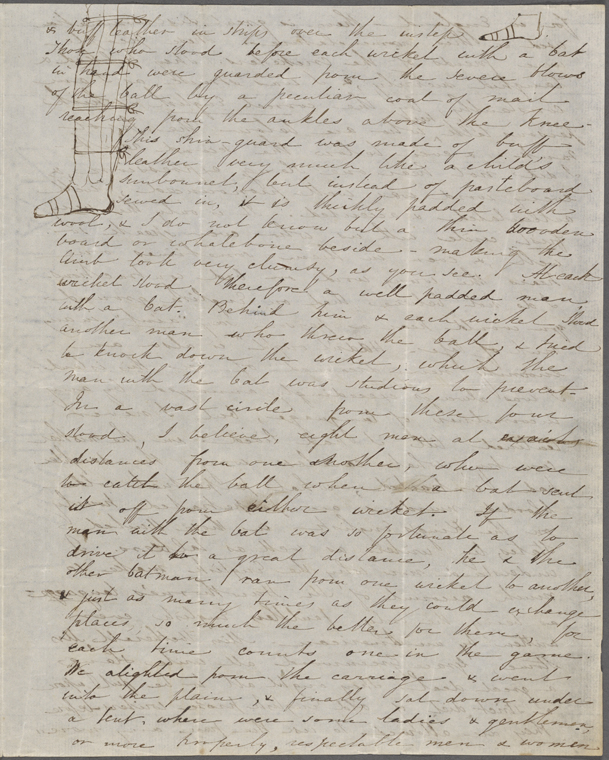 & buff leather in strips over the instep
Those who stood before each wicket with a bat
in hand were guarded from the severe blows
of the ball by a peculiar coat of mail
reaching from the ankles above the knee.
This shin-guard was made of buff
leather very much like a child's
sunbonnet, but instead of pasteboard
sewed in, it is thickly padded with
wool, & I do not know but a thin wooden
board or whalebone beside - making the
limb look very clumsy, as you see. At each
wicket stood therefore a well padded man
with a bat. Behind him & each wicket stood
another man who threw the ball, & tried
to knock down the wicket, which the
man with the bat was studious to prevent.
In a vast circle from these four
stood, I believe, eight men at
distances from one another, who were
to catch the ball when a bat sent
it off from either wicket If the
man with the bat was so fortunate as to
drive it to a great distance, he & the
other batman, ran from one wicket to another,
& just as many times as they could exchange
places, so much the better for them, for
each time counts one in the game.
We alighted from the carriage & went
into the plain, & finally sat down under
a tent, where were some ladies & gentlemen,
or more properly, respectable men & women